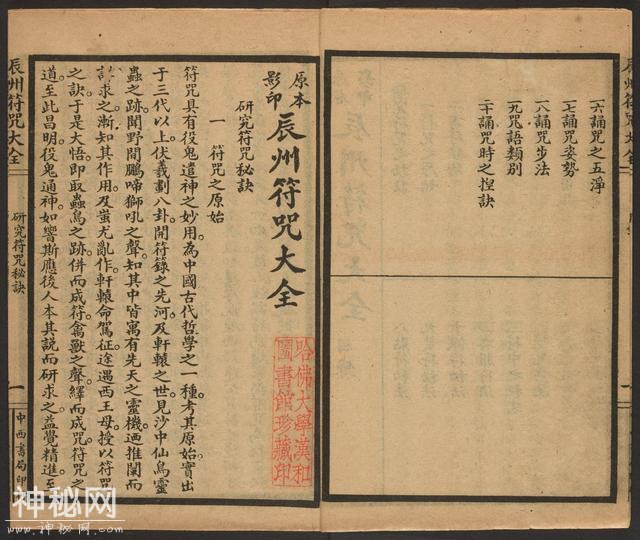 辰州符咒大全
六 誦咒之五淨
七 誦咒姿勢
八 誦咒步法
九 咒語類別
十 誦咒時之揑訣
原本影印 辰州符咒大全
研究符咒秘訣
一 符咒之原始
符咒具有役鬼遣神之妙用。為中國古代哲學之一種。考其原始。實出
于三代以上。伏羲劃八卦。開符籙之先河。及軒轅之世。見沙中仙鳥靈
蟲之跡。聞野間鵬啼獅吼之聲。知其中皆寓有先天之靈機。迺推闡而
求之。漸知其作用。及蚩尤亂作。軒轅命駕征途。遇西王母。授以符咒
之訣。于是大悟。即取蟲鳥之跡。併而成符。禽獸之聲。繹而成咒。符咒之
道。至此昌明。役鬼通神。如響斯應。後人本其說而研求之。益覺精進。至
辰州符咒大全
研究符咒秘訣
一
中西書局印
哈佛大學漢和
圖書館珍藏印
神秘网
www.神秘网.com